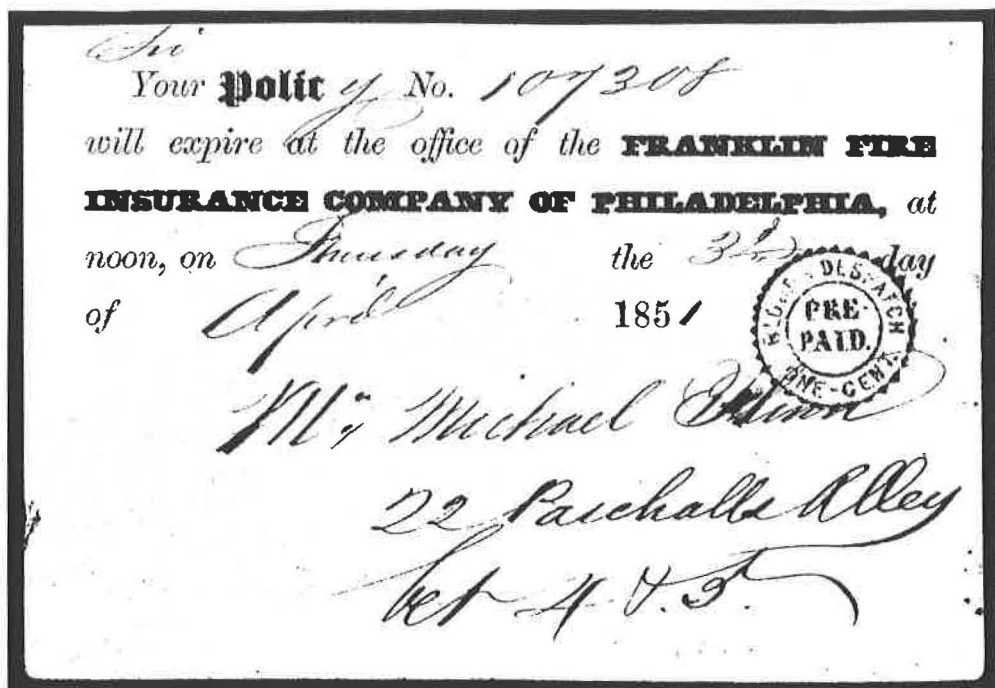 Sir
Your Policy No. 107308
will expire at the office of the FRANKLIN FIRE
INSURANCE COMPANY OF PHILADELPHIA, at
noon, on Thursday the 3d day
of April 1851
BLOOD'S DESPATCH
PRE-
PAID.
ONE-CENT.
Mr Michael
22 Paschalls Alley
bet 4 & 5